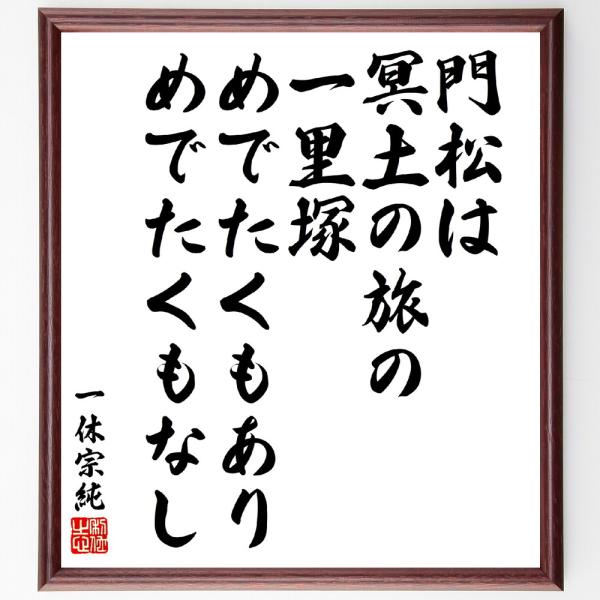 門松は
冥土の旅の
一里塚
めでたくもあり
めでたくもなし
一休宗純